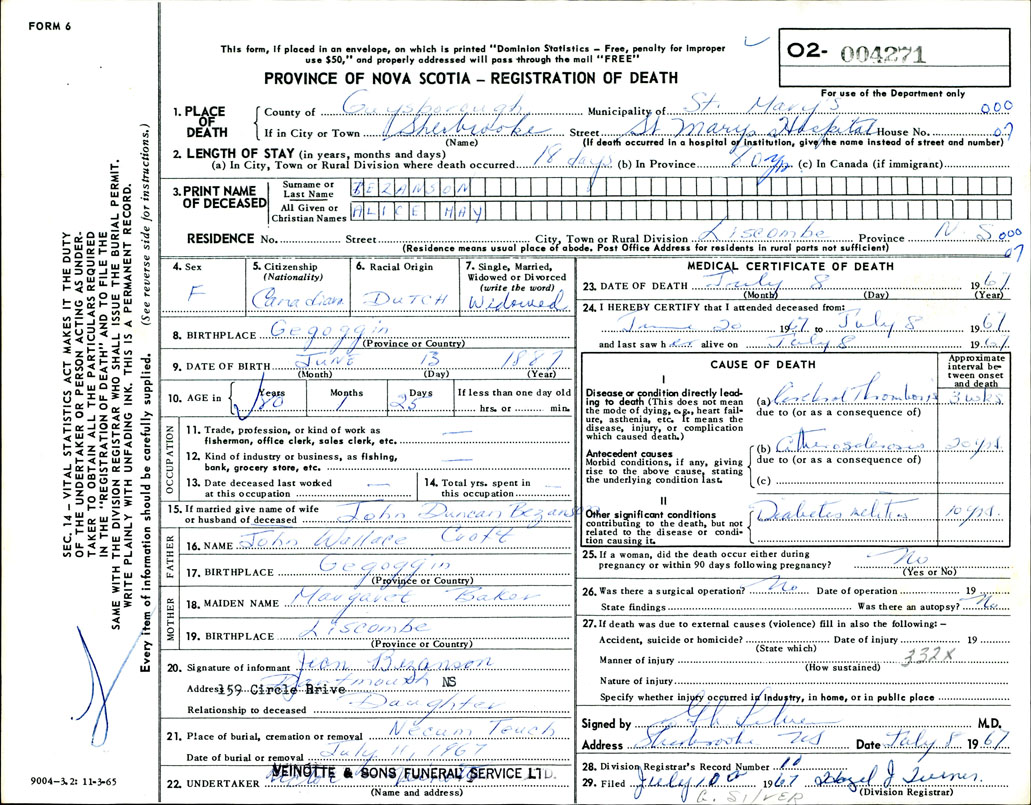 FORM 6
This form, if placed in an envelope, on which is printed "Dominion Statistics – Free, penalty for improper
use $50," and properly addressed will pass through the mail "FREE"
02- 004271
PROVINCE OF NOVA SCOTIA – REGISTRATION OF DEATH
For use of the Department only
1. PLACE OF DEATH
County of Guysborough Municipality of St. Mary's 000
If in City or Town Sherbrooke Street St Marys Hospital House No. 07
(Name) (If death occurred in a hospital or institution, give name instead of street and number)
2. LENGTH OF STAY (in years, months and days)
(a) In City, Town or Rural Division where death occurred 18 days (b) In Province (c) In Canada (if immigrant)
3. PRINT NAME OF DECEASED
Surname or Last Name BEZANSON
All Given or Christian Names ALICE MAY
RESIDENCE No. Street City, Town or Rural Division Liscombe Province N.S. 000
(Residence means usual place of abode. Post Office Address for residents in rural parts not sufficient) 07
SEC. 14 – VITAL STATISTICS ACT MAKES IT THE DUTY
OF THE UNDERTAKER OR PERSON ACTING AS UNDER-
TAKER TO OBTAIN ALL THE PARTICULARS REQUIRED
IN THE "REGISTRATION OF DEATH" AND TO FILE THE
SAME WITH THE DIVISION REGISTRAR WHO SHALL ISSUE THE BURIAL PERMIT.
WRITE PLAINLY WITH UNFADING INK. THIS IS A PERMANENT RECORD.
Every item of information should be carefully supplied. (See reverse side for instructions.)
4. Sex F
5. Citizenship (Nationality) Canadian
6. Racial Origin DUTCH
7. Single, Married, Widowed or Divorced (write the word) Widowed
8. BIRTHPLACE Gegoggin
(Province or Country)
9. DATE OF BIRTH JUNE 13 1887
(Month) (Day) (Year)
10. AGE in Years 80 Months 1 Days 25 If less than one day old
hrs. or min.
OCCUPATION
11. Trade, profession, or kind of work as
fisherman, office clerk, sales clerk, etc. —
12. Kind of industry or business, as fishing,
bank, grocery store, etc. —
13. Date deceased last worked
at this occupation —
14. Total yrs. spent in
this occupation —
15. If married give name of wife
or husband of deceased John Duncan Bezanson
FATHER
16. NAME John Wallace Croft
17. BIRTHPLACE Gegoggin
(Province or Country)
MOTHER
18. MAIDEN NAME Margaret Baker
19. BIRTHPLACE Liscombe
(Province or Country)
20. Signature of informant Jean Bezanson
Dartmouth NS
Address 159 Circle Drive
Relationship to deceased Daughter
21. Place of burial, cremation or removal Necum Teuch
Date of burial or removal July 11, 1967
22. UNDERTAKER VEINOTTE & SONS FUNERAL SERVICE LTD.
(Name and address)
9004-3.2: 11-3-65
MEDICAL CERTIFICATE OF DEATH
23. DATE OF DEATH July 8 1967
(Month) (Day) (Year)
24. I HEREBY CERTIFY that I attended deceased from:
June 20 1967 to July 8 1967
and last saw her alive on July 8 1967
CAUSE OF DEATH
Approximate interval between onset and death
I
Disease or condition directly lead-
ing to death (This does not mean
the mode of dying, e.g., heart fail-
ure, asthenia, etc. It means the
disease, injury, or complication
which caused death.)
(a) Cerebral Thrombosis 3 wks.
due to (or as a consequence of)
Antecedent causes
Morbid conditions, if any, giving
rise to the above cause, stating
the underlying condition last.
(b) Atherosclerosis 20 yrs.
due to (or as a consequence of)
(c)
II
Other significant conditions
contributing to the death, but not
related to the disease or condi-
tion causing it.
Diabetes melitis 10 yrs.
25. If a woman, did the death occur either during
pregnancy or within 90 days following pregnancy? No
(Yes or No)
26. Was there a surgical operation? No Date of operation 19
State findings Was there an autopsy? No
27. If death was due to external causes (violence) fill in also the following: –
Accident, suicide or homicide? Date of injury 19
(State which)
Manner of injury 332X
(How sustained)
Nature of injury
Specify whether injury occurred in industry, in home, or in public place
Signed by M.D.
Address Sherbrooke NS Date July 8 1967
28. Division Registrar's Record Number 10
29. Filed July 10 1967 Hazel J Turner
(Division Registrar)
G. SILVER